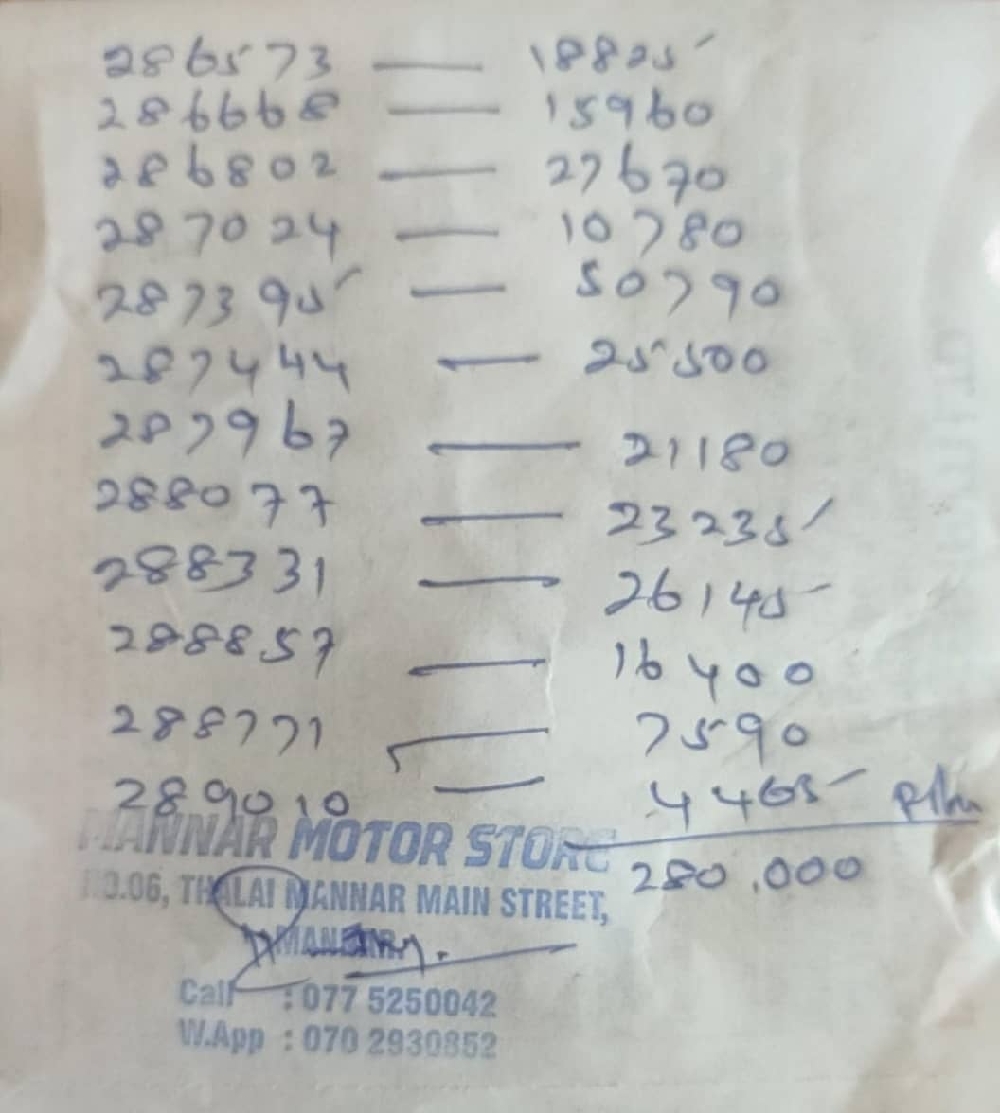 286573 — 18825
286668 — 15960
286802 — 27670
287024 — 10780
287395 — 50790
287444 — 25500
287967 — 21180
288077 — 23235
288331 — 26145
288857 — 16400
288771 — 7590
289010 — 4465
280.000
MANNAR MOTOR STORE
NO.06, THALAI MANNAR MAIN STREET,
MANNAR.
Call : 077 5250042
W.App : 070 2930852